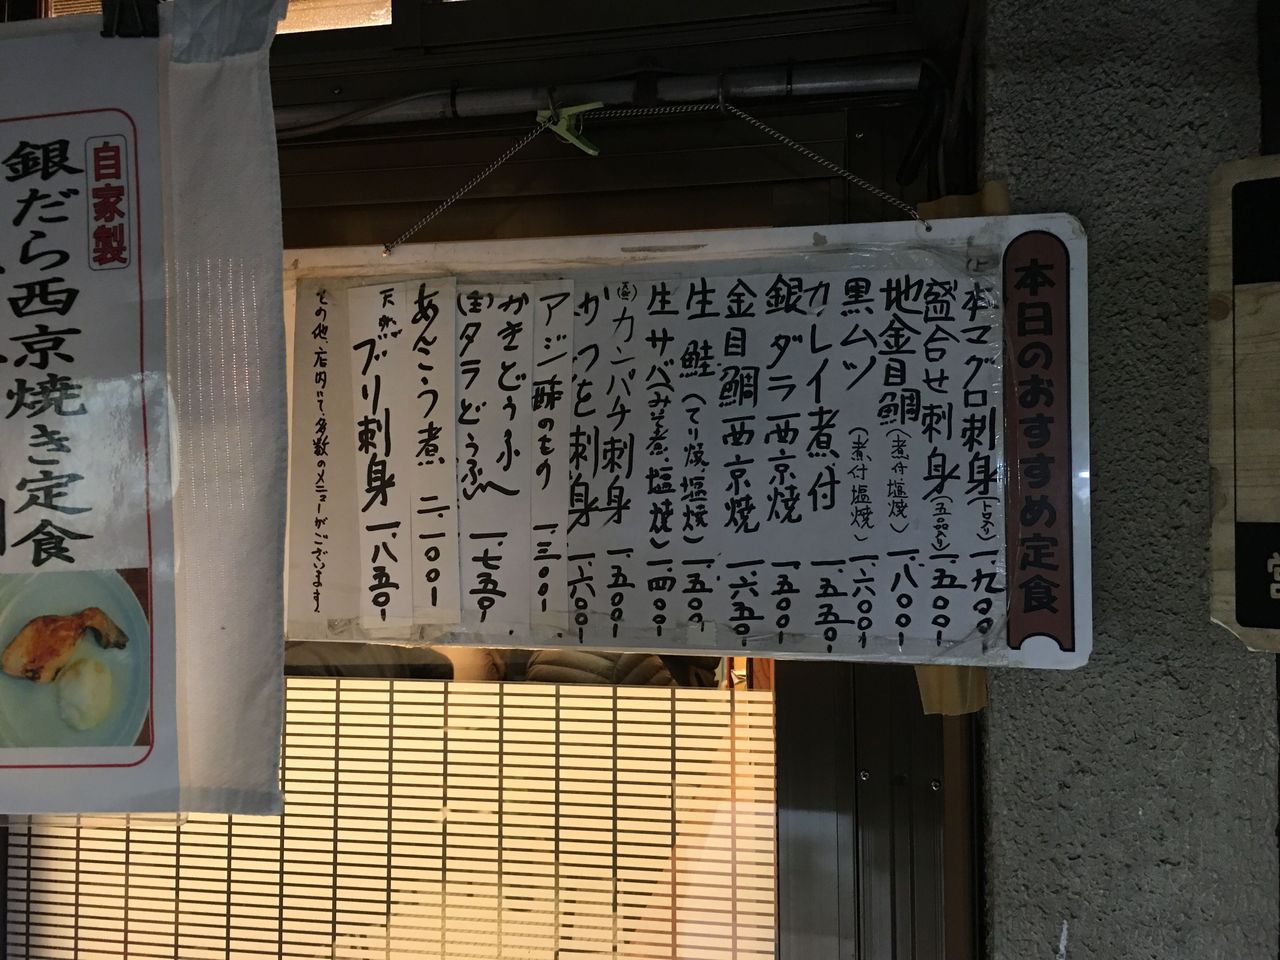 本日のおすすめ定食
本マグロ刺身(トロ入り)一、九〇〇
盛合せ刺身(五品入り)一、五〇〇-
地金目鯛(煮付塩焼)一、八〇〇-
黒ムツ(煮付塩焼)一、六〇〇-
カレイ煮付 一、五五〇-
銀ダラ西京焼 一、五〇〇-
金目鯛西京焼 一、六五〇-
生鮭(てり焼、塩焼)一、五〇〇
生サバ(みそ煮、塩焼)一、四〇〇-
(天然)カンパチ刺身 一、五〇〇-
かつを刺身 一、六〇〇-
アジ酢のもの 一、三〇〇-
かきどうふ
(生)タラどうふ 一、七五〇-
あんこう煮 二、一〇〇-
天然ブリ刺身 一、八五〇-
その他、店内にて、多数のメニューがございます。
自家製
銀だら西京焼き定食